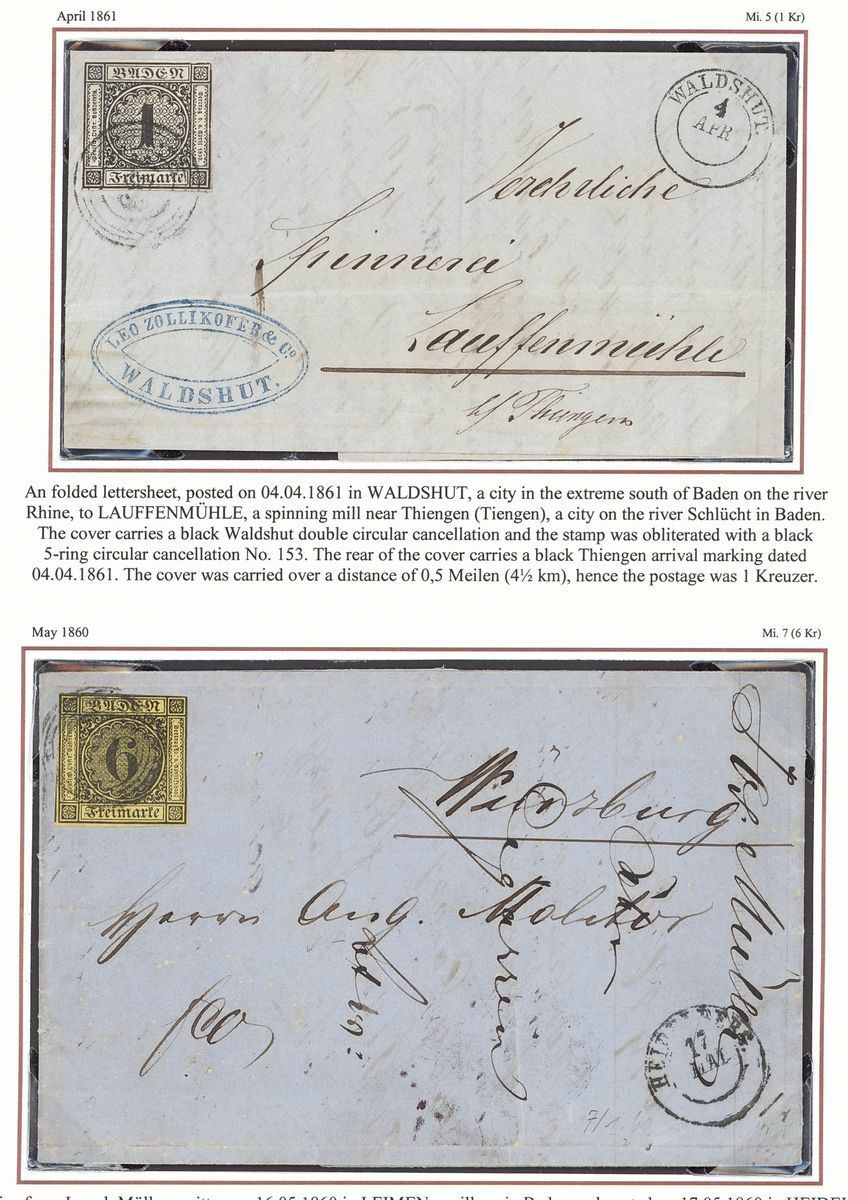 April 1861
Mi. 5 (1 Kr)
BADEN
1
Freimarke
WALDSHUT.
4
APR
Verehrliche
Spinnerei
Lauffenmühle
b/ Thiengen
LEO ZOLLIKOFER & Cº
WALDSHUT.
An folded lettersheet, posted on 04.04.1861 in WALDSHUT, a city in the extreme south of Baden on the river
Rhine, to LAUFFENMÜHLE, a spinning mill near Thiengen (Tiengen), a city on the river Schlücht in Baden.
The cover carries a black Waldshut double circular cancellation and the stamp was obliterated with a black
5-ring circular cancellation No. 153. The rear of the cover carries a black Thiengen arrival marking dated
04.04.1861. The cover was carried over a distance of 0,5 Meilen (4½ km), hence the postage was 1 Kreuzer.
May 1860
Mi. 7 (6 Kr)
BADEN
6
Freimarke
Würzburg
Herrn Aug. Molitor
fco
HEIDELBERG.
17
MAI
16.05.1860 in LEIMEN
17.05.1860 in